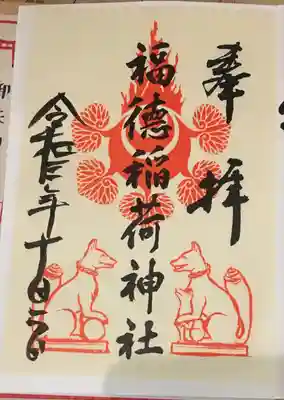 奉拝
福徳稲荷神社
令和 年十月 日